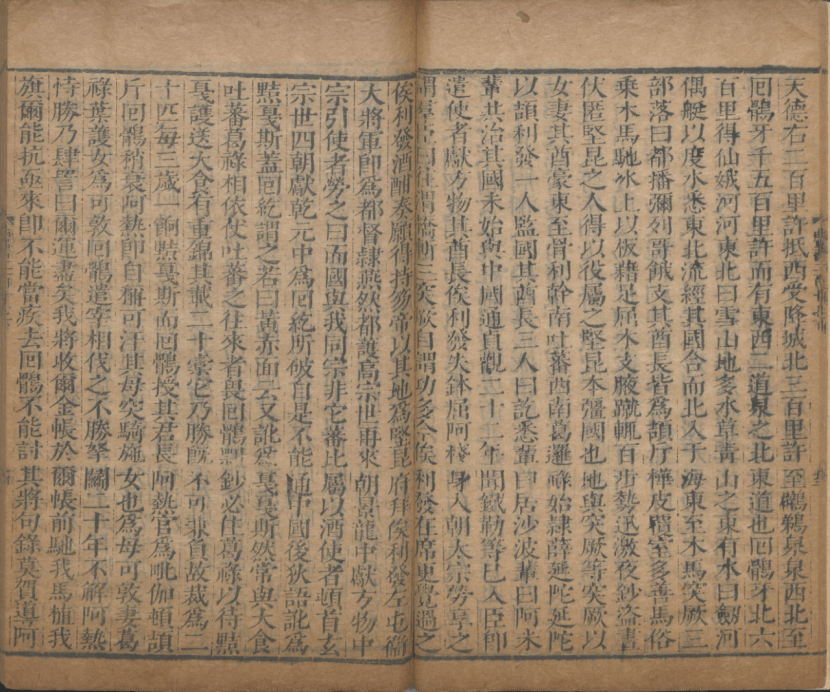 天德右二百里許抵西受降城北三百里許至鸊鵜泉泉西北至
回鶻牙千五百里許而有東西二道泉之北東道也回鶻牙北六
百里得仙娥河河東北曰雪山地多水草青山之東有水曰劒河
偶艇以度水悉東北流經其國合而北入于海東至木馬突厥三
部落曰都播彌列哥餓支其酋長皆爲頡斤樺皮覆室多善馬俗
乘木馬馳冰上以板藉足屈木支腋蹴輒百步勢迅激夜鈔盜晝
伏匿堅昆之人得以役屬之堅昆本彊國也地與突厥等突厥以
女妻其酋豪東至骨利幹南吐蕃西南葛邏祿始隸薛延陀延陀
以頡利發一人監國其酋長三人曰訖悉輩曰居沙波輩曰阿米
輩共治其國未始與中國通貞觀二十二年聞鐵勒等已入臣即
遣使者獻方物其酋長俟利發失鉢屈阿棧身入朝太宗勞享之
謂羣臣曰往渭橋斬三突厥自謂功多今俟利發在席更覺過之
俟利發酒酣奏願得持笏帝以其地爲堅昆府拜俟利發左屯衞
大將軍即爲都督隸燕然都護高宗世再來朝景龍中獻方物中
宗引使者勞之曰而國與我同宗非它蕃比屬以酒使者頓首玄
宗世四朝獻乾元中爲回紇所破自是不能通中國後狄語訛爲
黠戛斯蓋回紇謂之若曰黃赤面云又訛爲戛戛斯然常與大食
吐蕃葛祿相依仗吐蕃之往來者畏回鶻剽鈔必住葛祿以待黠
戛護送大食有重錦其載二十橐它乃勝既不可兼負故裁爲二
十匹每三歲一餉黠戛斯而回鶻授其君長阿熱官爲毗伽頓頡
斤回鶻稍衰阿熱即自稱可汗其母突騎施女也爲母可敦妻葛
祿葉護女爲可敦回鶻遣宰相伐之不勝拏鬬二十年不解阿熱
恃勝乃肆詈曰爾運盡矣我將收爾金帳於爾帳前馳我馬植我
旗爾能抗亟來即不能當疾去回鶻不能討其將句錄莫賀導阿